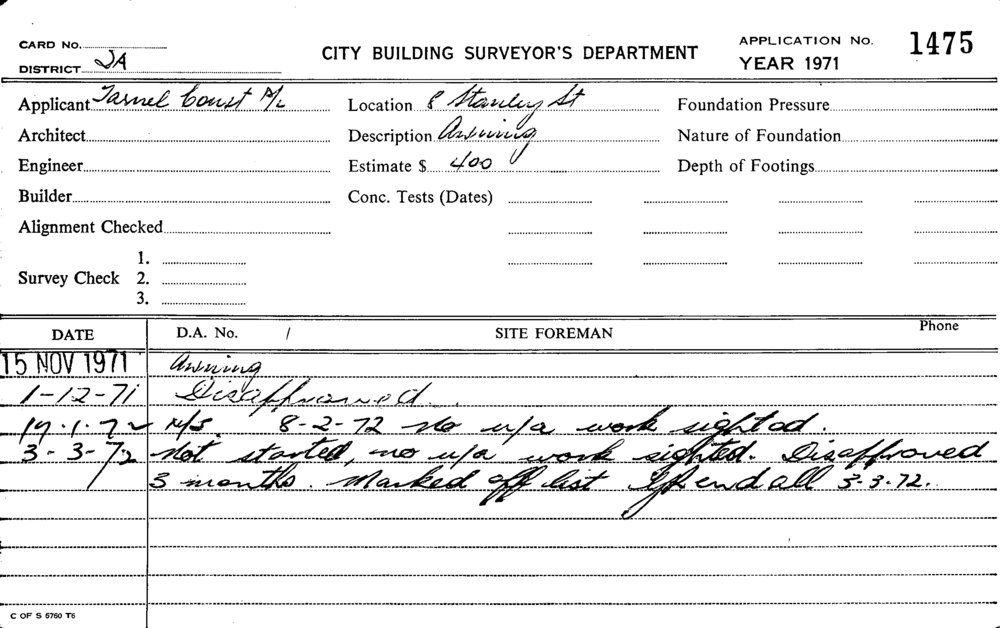 CARD No.
DISTRICT 2A
CITY BUILDING SURVEYOR'S DEPARTMENT
APPLICATION No. 1475
YEAR 1971
Applicant Tarnel Const P/L
Location 8 Stanley St
Foundation Pressure
Architect
Description Awning
Nature of Foundation
Engineer
Estimate $ 400
Depth of Footings
Builder
Conc. Tests (Dates)
Alignment Checked
Survey Check 1.
2.
3.
DATE D.A. No. / SITE FOREMAN Phone
15 NOV 1971 Awning
1-12-71 Disapproved.
19.1.72 N/S. 8-2-72 no u/a work sighted.
3-3-72 Not started, no u/a work sighted. Disapproved
3 months. Marked off list 3-3-72.
C OF S 6760 T6